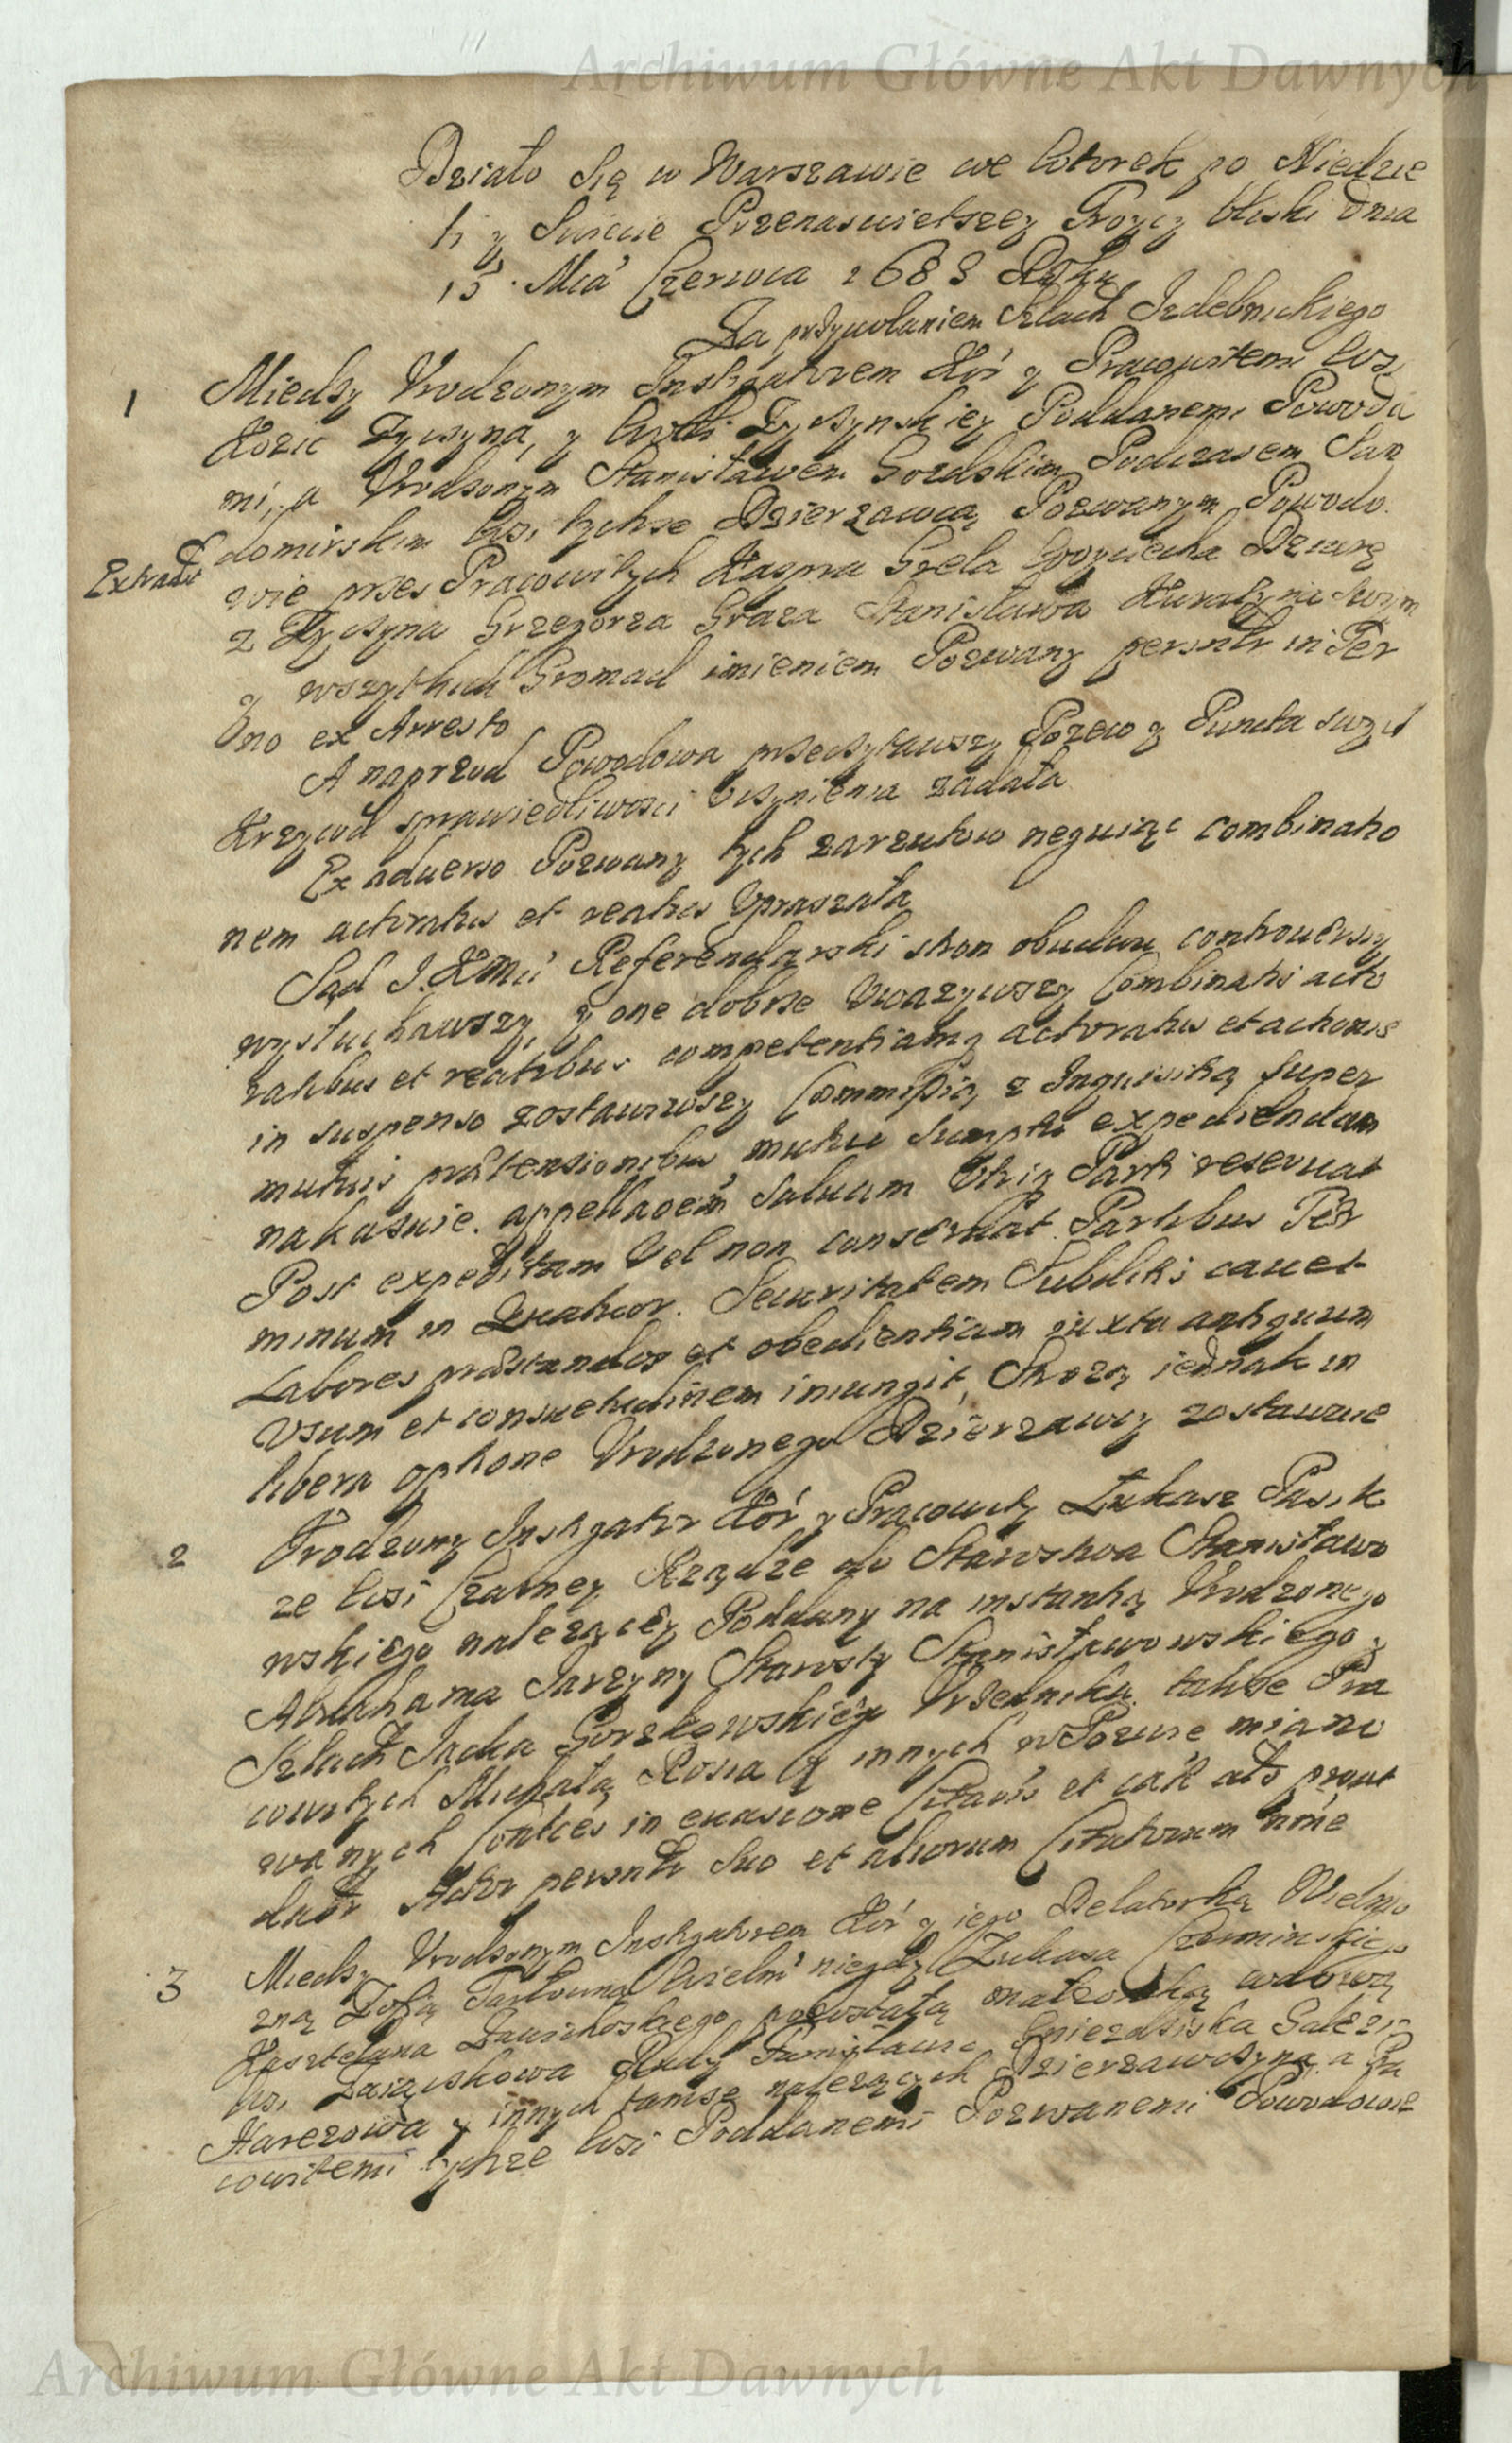 Archiwum Główne Akt Dawnych
Działo się w Warszawie we Wtorek po Niedzie
li y Swięcie Przenaswietszey Troycy bliski dnia
15 Mca Czerwca 1683 Roku
Za przywołaniem Szlach Izdebnickiego
1 Miedzy Urodzonym Instigatorem Kor y Pracowitemi Wsi
Kozic Zyczyna, y Woli Zyczynskiey Poddanemi Powoda
mi, a Urodzonym Stanisławem Gordskim Podczasem San
domirskim Wsi tychze Dzierzawcą Pozwanym Powodo
Extradt
wie przez Pracowitych Kaspra Grela Woyciecha Dziurę
z Zyczyna Grzegorza Graza Stanisława swym
y wszytkich Gromad imieniem Pozwany personlr in Ter
o no ex Arresto
A naprzod Powodowa przeczytawszy Pozew y Puncta swych
Krzywd sprawiedliwosci Uczynienia ządała
Ex aduerso Pozwany tych zarzutow neguiąc combinatio
nem actoratus et reatus Upraszała
Sąd J. K Mci Referendarski stron obudwu controuersiy
wysłuchawszy, y one dobrze Uwazywszy Combinatis acto
ratibus et reatibus competentiamq actoratus et actionis
in suspenso zostawiwszy Commissią z Inquisitią super
mutuis prætensionibus mutuo sumptu expediendam
nakazuie. appellaoem saluam Utriq Parti reseruat
Post expeditam Vel non conseruat Partibus Ter
minum in Quatuor. Securitatem Subditis cauet
Labores præstandos et obedientiam iuxta antiquum
Usum et consuetudinem iniungit, Strozą iednak in
libera optione Urodzonego Dzierzawcy zostawuie
2 Urodzony Instigator Kor y Pracowity Łukasz Pasik
ze Wsi Czarney Rządze do Starostwa Stanisławo
wskiego nalezącey Poddany na instantią Urodzonego
Abrahama Jarzyny Starosty Stanisławowskiego y
Szlach Jacka Gorzkowskiego Urzednika takze Pra
cowitych Michała Rosia y innych w Pozwie miano
wanych Contces in euasione Citaois et cak ats prout
duor Actor personlr suo et aliorum Citatorum nõie
3 Miedzy Urodzonym Instigatorem Kor y iego Delatorką Wielmo
zną Zofią Tarłowną Wielm niegdy Łukasza Czerminskiego
Kasztelana Zawichoskiego pozostałą małzonką wdową
Wsi Zaiączkowa Rudy Gniezdziska Gałęzic
Harezowa y innych tamze nalezących Dzierzawczyną a Pra
cowitemi tychze Wsi Poddanemi Pozwanemi Powodowie
Archiwum Główne Akt Dawnych